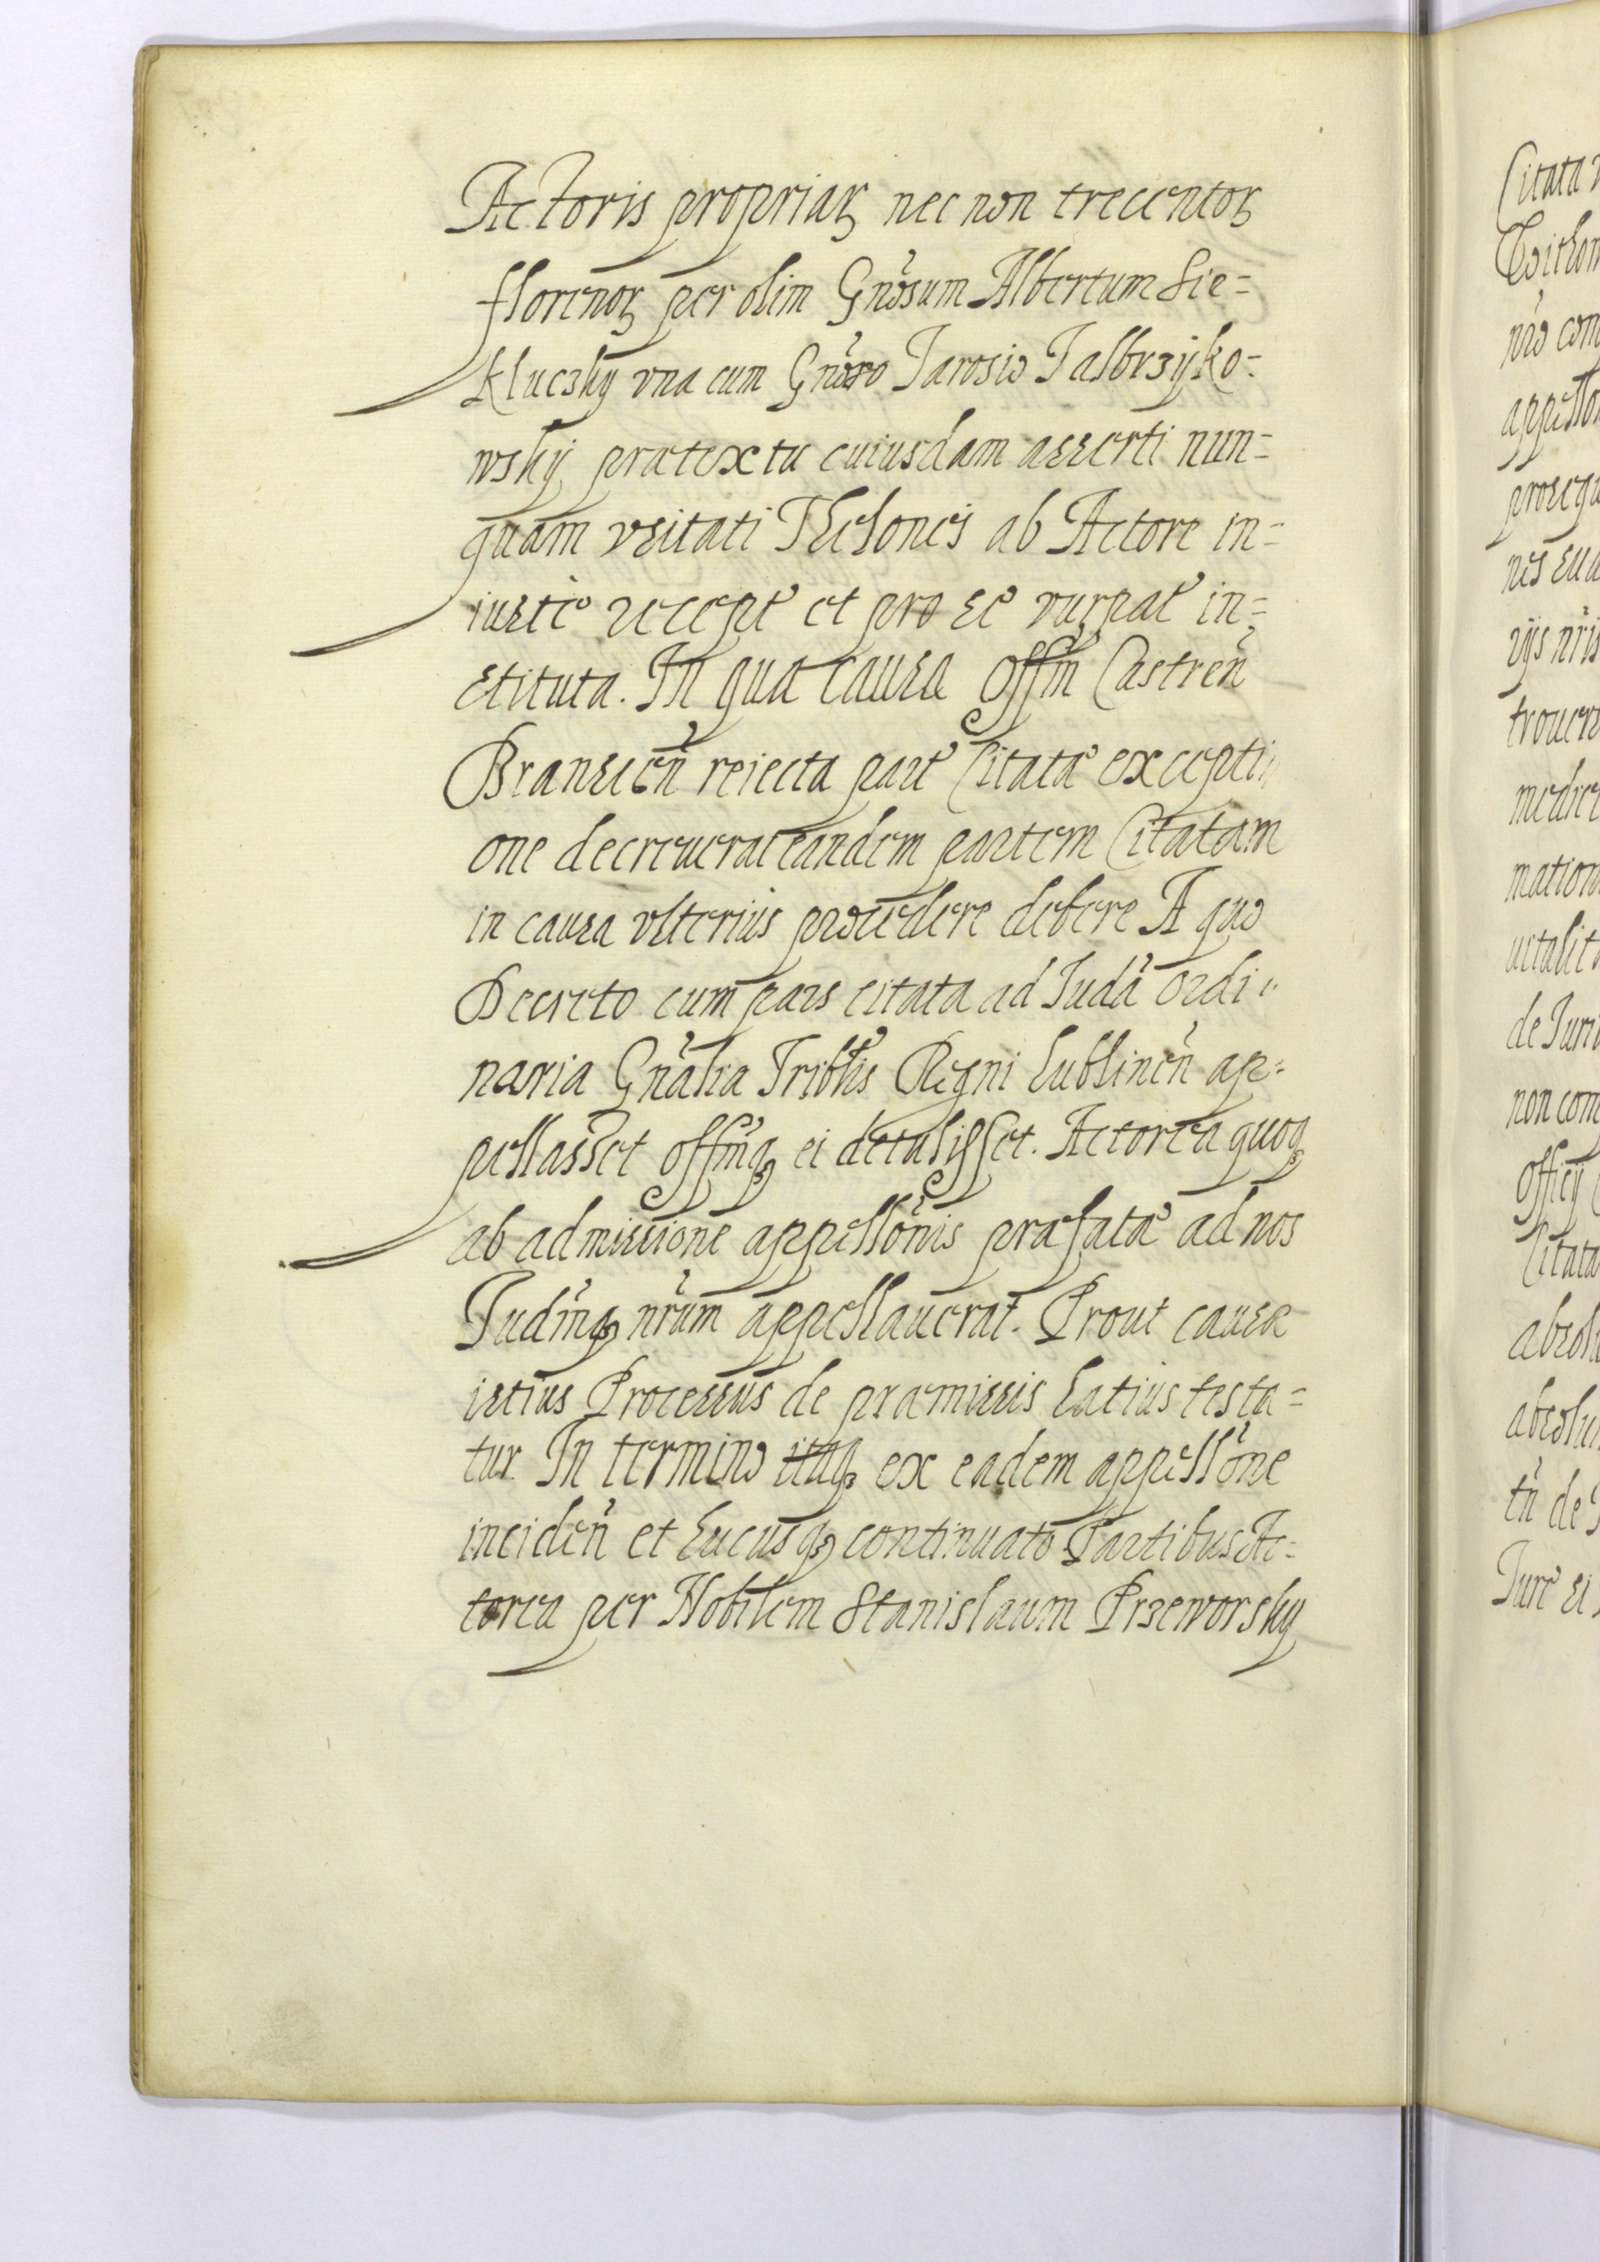 Actoris propriaꝝ nec non trecentoꝝ
florenoꝝ per olim Gnôsum Albertum Sie=
kluczky vna cum Gnôso Jarosio Jalbrzyko=
wsky prætextu cuiusdam asserti nun=
quam vsitati Thelonei ab Actore in=
iuste recept et pro se vsurpat in=
stituta. In qua causa Offm̃ Castreñ
Bransceñ reiecta part Citatæ excepti
one decreuerat eandem partem Citatam
in causa vlterius procedere debere A quo
Decreto cum pars citata ad Judã Ordi=
naria Gñalia Tribłis Regni Lublineñ ap=
pellasset offm̃qꝫ ei detulisset. Actorea quoqꝫ
ab admissione appellõnis præfatæ ad nos
Judm̃qꝫ nr̃um appellauerat. Prout causæ
istius Processus de præmissis latius testa=
tur. In termino itaqꝫ ex eadem appellõne
incideñ et hucusqꝫ continuato Partibus Ac=
torea per Nobilem Stanislaum Przeworsky
Citata
nr̃o com
appello
prosequ
nes
vijs nr̃is
trouer
medie
mation
de Juri
non com
Officij
Citata
absolu
absolu
tñ de
Jure ei